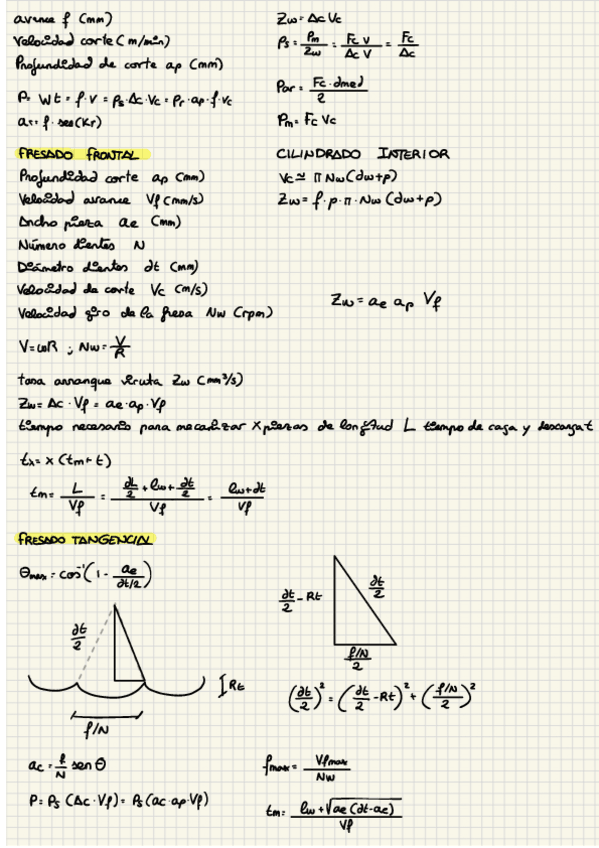 avance f (mm)
Velocidad corte (m/min)
Profundidad de corte ap (mm)
P = Wt = f·v = Ps·Ac·Vc = Pr·ap·f·vc
ac = f·sen(Kr)
Zw = Ac Vc
Ps = Pm/Zw = Fc V/Ac V = Fc/Ac
Par = Fc·dmed/2
Pm = Fc Vc
FRESADO FRONTAL
Profundidad corte ap (mm)
Velocidad avance Vf (mm/s)
Ancho pieza ae (mm)
Número dientes N
Diámetro dientes dt (mm)
Velocidad de corte Vc (m/s)
Velocidad giro de la fresa Nw (rpm)
V = ωR ; Nw = V/R
CILINDRADO INTERIOR
Vc ≃ π Nw (dw+p)
Zw = f·p·π·Nw (dw+p)
Zw = ae ap Vf
tasa arranque viruta Zw (mm³/s)
Zw = Ac·Vf = ae·ap·Vf
tiempo necesario para mecanizar x piezas de longitud L tiempo de caga y descarga t
tx = x (tm + t)
tm = L/Vf = (dt/2 + lw + dt/2)/Vf = (lw + dt)/Vf
FRESADO TANGENCIAL
θmax = cos⁻¹(1 - ae/(dt/2))
dt/2
Rt
f/N
dt/2 - Rt
dt/2
(f/N)/2
(dt/2)² = (dt/2 - Rt)² + ((f/N)/2)²
ac = f/N sen θ
P = Ps (Ac·Vf) = Ps (ac·ap·Vf)
fmax = Vfmax/Nw
tm = (lw + √(ae (dt-ae)))/Vf